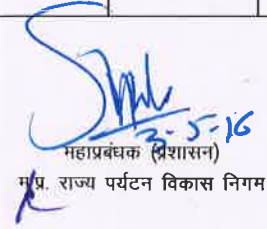 3-5-16
महाप्रबंधक (प्रशासन)
म.प्र. राज्य पर्यटन विकास निगम